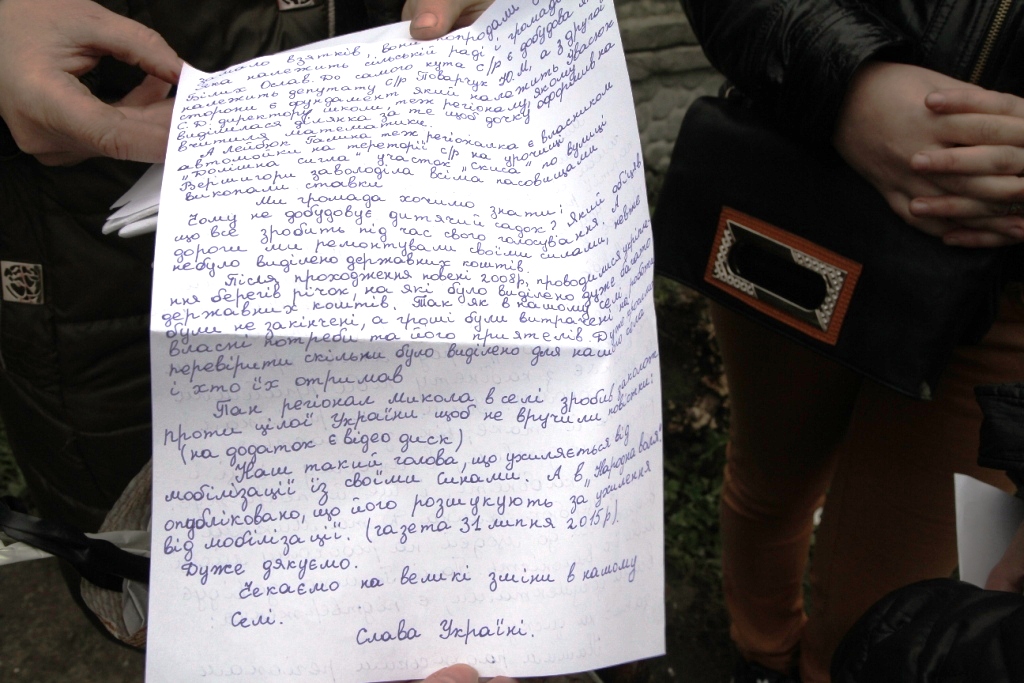 взятків, вони
яка належить сільській раді і громаді
Білих Ослав. До самого кута с/р є добудова
належить депутату с/р Поварчук Ю.М, а з другої
сторони є фундамент який належить Квасюк
С.Д. директору школи, теж регіоналу, якому
виділилася ділянка за те щоб дочку оформив на
вчителя математики.
А Лейбюк Галина теж регіоналка є власником
автомойки на тереторії с/р на урочищі
"Долишна сигла" участок "Скиса" по вулиці
Вершигори заволоділа всіма пасовищами
викопали ставки
Ми громада хочимо знати:
Чому не добудовує дитячий садок? Який обіцяв
що все зробить під час свого голосування. А
дороги ми ремонтували своїми силами,
небуло виділено державних коштів.
Після проходження повені 2008р, проводилися укріпле-
ння берегів річок на які було виділено дуже багато
державних коштів. Так як в нашому селі роботи
були не закінчені, а гроші були витрачені на
власні потреби та його приятелів. Дуже просимо
перевірити скільки було виділено для нашого села
і хто їх отримав
Пак регіонал Микола в селі зробив заколот
проти цілої України щоб не вручили повістки:
(на додаток є відео диск)
Наш такий голова, що ухиляється від
мобілізації із своїми синами. А в "Народна воля"
опубліковано, що його розшукують за ухилення
від мобілізації". (газета 31 липня 2015р).
Дуже дякуємо.
Чекаємо на великі зміни в нашому
Селі.
Слава Україні.